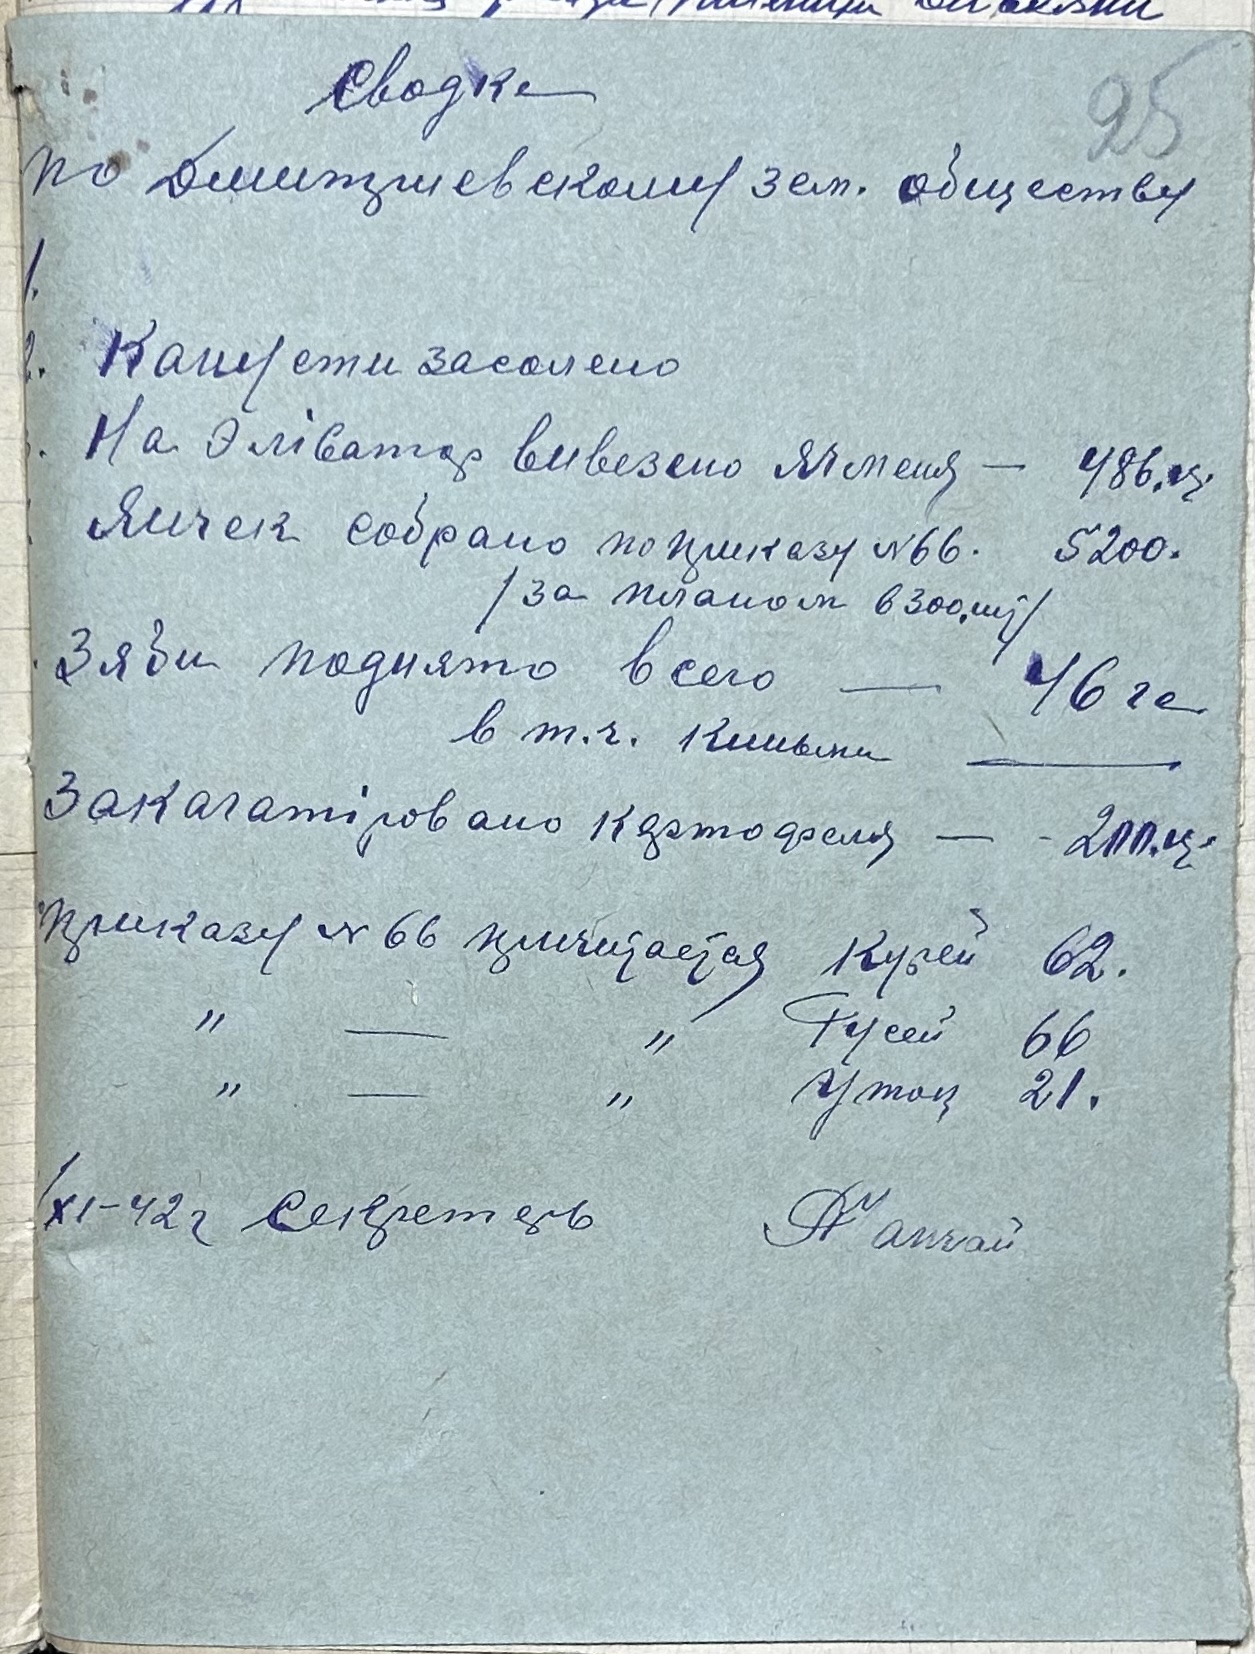 25
Сводка
по Дмитриевскому зем. обществу
1.
2. Капусти засолено
3. На Элiватор вивезено ячменя — 486.ц.
Яичек собрано по приказу №66. 5200.
/за планом 6300.шт/
Зяби поднято всего — 46 га
в т.ч. Киньми —
Закагатiровано картофеля — 200.ц.
приказу №66 причитается Курей 62.
" — " Гусей 66
" — " Уток 21.
/XI-42г Секретарь